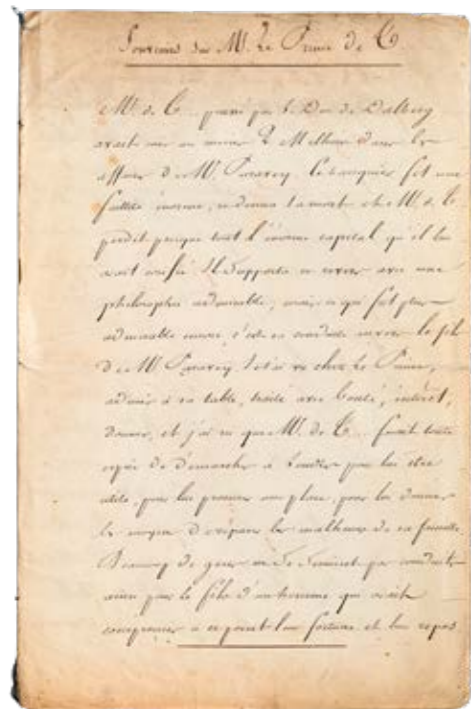 Souvenirs sur M. Le Prince de T.
Mr. de T... poussé par le Duc de Dalberg
avait mis au moins 2 Millions dans les
affaires de M. Paravey. Ce banquier fit une
faillite énorme, se donna la mort et M. de T.
perdit presque tout l'énorme capital qu'il lui
avait confié. Il supporta ce revers avec une
philosophie admirable, mais ce qui fut plus
admirable encore c'est sa conduite envers le fils
de M. Paravey. Je l'ai vu chez Le Prince,
admis à sa table, traité avec bonté, intérêt,
douceur, et j'ai vu que M. de T... faisait toute
espèce de démarches à Londres pour lui être
utile, pour lui procurer une place, pour lui donner
les moyens de réparer les malheurs de sa famille
Beaucoup de gens ne se seraient pas conduits
ainsi pour le fils d'un homme qui avait
compromis à ce point leur fortune et leur repos